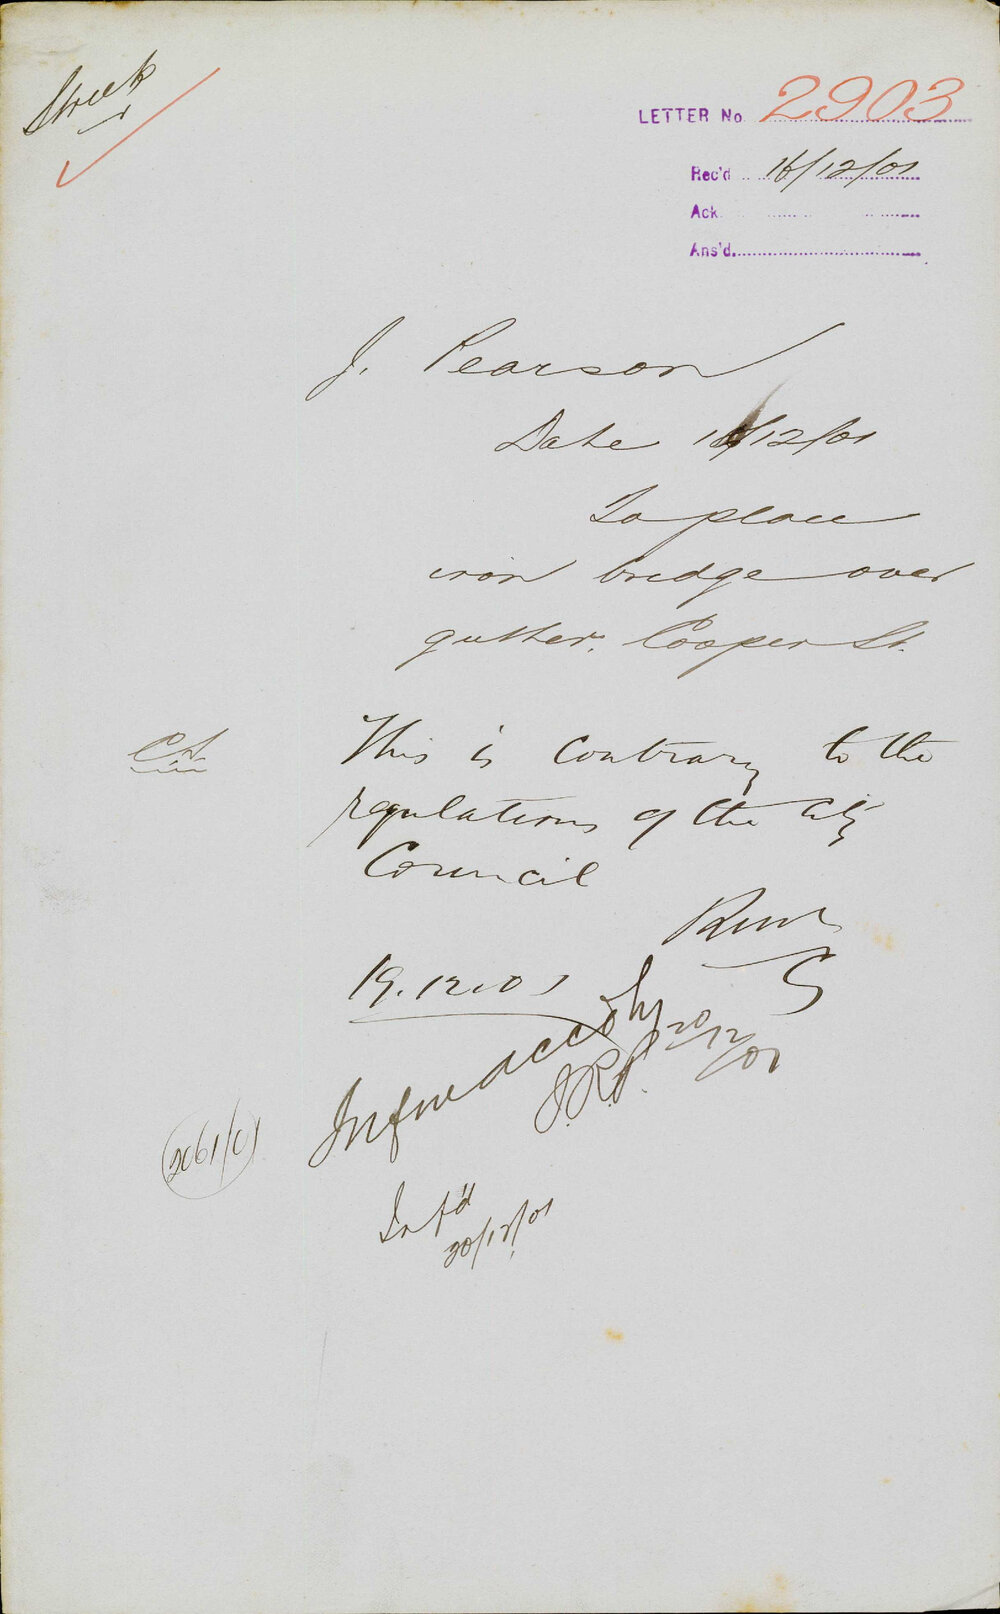 Streets
LETTER No 2903
Rec'd 16/12/01
Ack.
Ans'd.
J. Pearson
Date 16/12/01
To place
iron bridge over
gutter. Cooper St.
CS
This is contrary to the
regulations of the City
Council
RWR
CS
19.12.01
Inform accdly
J.R.P. 20/12/01
(2061/01)
Inf'd
20/12/01